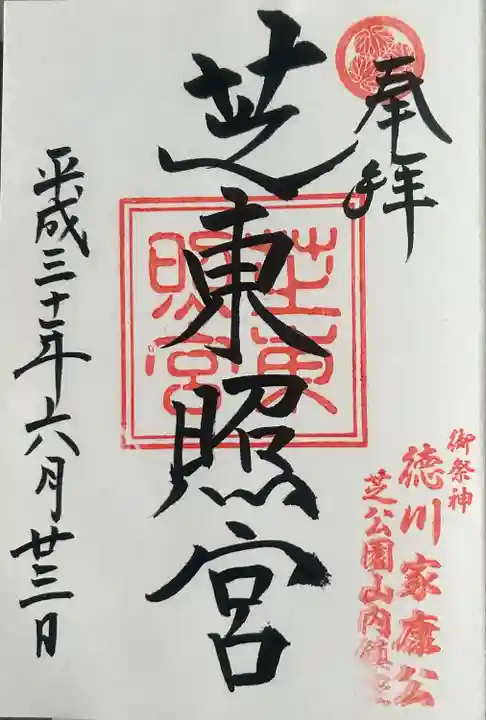 奉拝
芝東照宮
芝東照宮
平成三十年六月廿三日
御祭神
徳川家康公
芝公園山内鎮座